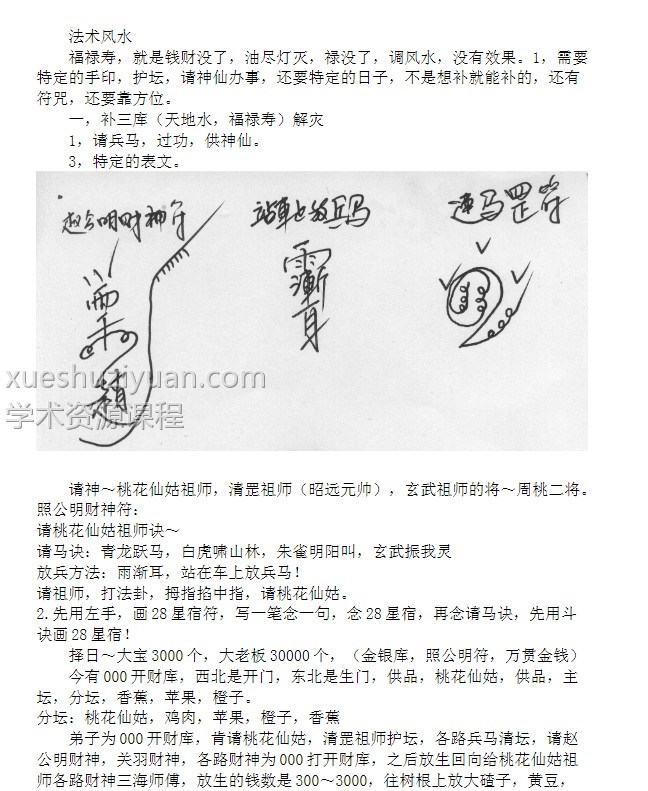 法术风水
福禄寿，就是钱财没了，油尽灯灭，禄没了，调风水，没有效果。1，需要
特定的手印，护坛，请神仙办事，还要特定的日子，不是想补就能补的，还有
符咒，还要靠方位。
一，补三库（天地水，福禄寿）解灾
1，请兵马，过功，供神仙。
3，特定的表文。
赵公明财神符
站車上放兵马
速马罡符
xueshuziyuan.com
学术资源课程
请神～桃花仙姑祖师，清罡祖师（昭远元帅），玄武祖师的将～周桃二将。
照公明财神符：
请桃花仙姑祖师诀～
请马诀：青龙跃马，白虎啸山林，朱雀明阳叫，玄武振我灵
放兵方法：雨渐耳，站在车上放兵马！
请祖师，打法卦，拇指掐中指，请桃花仙姑。
2.先用左手，画28星宿符，写一笔念一句，念28星宿，再念请马诀，先用斗
诀画28星宿！
择日～大宝3000个，大老板30000个，（金银库，照公明符，万贯金钱）
今有000开财库，西北是开门，东北是生门，供品，桃花仙姑，供品，主
坛，分坛，香蕉，苹果，橙子。
分坛：桃花仙姑，鸡肉，苹果，橙子，香蕉
弟子为000开财库，肯请桃花仙姑，清罡祖师护坛，各路兵马清坛，请赵
公明财神，关羽财神，各路财神为000打开财库，之后放生回向给桃花仙姑祖
师各路财神三海师傅，放生的钱数是300～3000，往树根上放大碴子，黄豆，